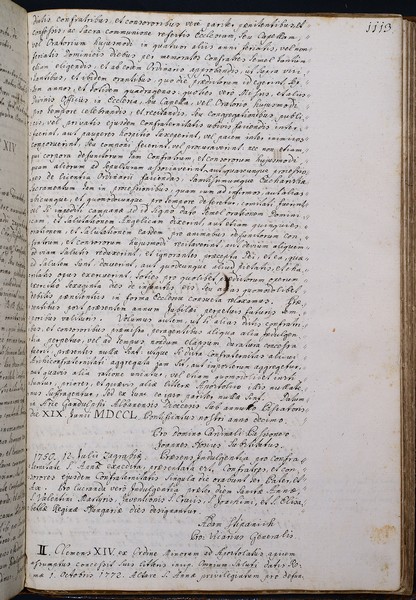 1113
dictis confratribus, et consororibus vere pariter penitentibus et
confessis, ac Sacra communione refectis Ecclesiam, seu Capellam,
vel Oratorium hujusmodi in quatuor aliis anni feriatis, vel non
feriatis Dominicis diebus per memoratos Confratres semel tantum
eligendis, et ab eodem Ordinario approbandis, ut supra visi-
tantibus, et ibidem orantibus, quo die praedictorum id egerint, Sep-
tem annos, et totidem quadragenas. quoties vero Missis, et aliis
Divinis Officiis in Ecclesia, seu Capella, vel Oratorio hujusmodi
pro tempore celebrandis, et recitandis, seu Congregationibus publi-
cis, vel privatis ejusdem Confraternitatis ubivis faciendis inter-
fuerint, aut pauperes hospitio susceperint, vel pacem inter inimicos
composuerint, seu componi fecerint, vel procuraverint, nec non etiam
qui corpora defunctorum tam Confratrum, et consororum hujusmodi
quam aliorum ad sepulturam associaverint, aut quascunque processio-
nes de licentia Ordinarii faciendas, Sanctissimumque Eucharistiae
Sacramentum tam in processionibus, quam cum ad infirmos, aut alias
ubicunque, et quomodocunque pro tempore deferetur, comitati fuerint,
vel si impediti campanae ad id signo dato semel orationem Domini-
cam, et Salutationem Angelicam dixerint, aut etiam quinquies
orationem, et Salutationem eandem pro animabus defunctorum con-
fratrum, et consororum hujusmodi recitaverint, aut devium aliquem
ad viam Salutis reduxerint, et ignorantes praecepta Dei, et ea, quae
ad Salutem sunt, docuerint, aut quodcunque aliud pietatis, et cha-
ritatis opus exercuerint, toties pro quolibet praedictorum operum
exercitio Sexaginta dies de injunctis eis, seu alias quomodolibet
debitis poenitentiis in forma Ecclesiae consueta relaxamus. Prae-
sentibus post praesentem annum Jubilaei perpetuis futuris tem-
poribus valituris. Volumus autem, ut si alias dictis confratri-
bus, et consororibus praemissa peragentibus aliqua alia Indulgen-
tia perpetuo, vel ad tempus nondum elapsum duratura concessa
fuerit, praesentes nullae sint, utque si dicta Confraternitas alicui
Archiconfraternitati aggregata jam sit, aut imposterum aggregetur,
aut quavis alia ratione uniatur, vel etiam quomodolibet insti-
tuatur, priores, et quaevis aliae litterae Apostolicae illis nullate-
nus Suffragentur, sed ex tunc eo ipso pariter nullae sint. Datum
in Arce Gandulphi Albanensis Dioecesis sub annulo Piscatoris
die XIX Junii MDCCL. Pontificatus nostri anno decimo.
Pro domino Cardinali Passioneo
Joannes Florius Substitutus.
1750. 12. Julii Zagrabiae. Praesens Indulgentia pro confra-
ternitate S. Annae
ejusdem Confraternitatis Singula die orabunt ter Pater, et
Ave. Pro lucranda vero Indulgentia praeter diem Sanctae Annae,
S. Valentini Martyris, Inventionis S. Crucis, S. Joachimi, et S. Elisa-
bethae Reginae Hungariae dies designantur.
Adam
Pro: Vicarius Generalis
II. Clemens XIV. ex Ordine Minorum ad Apostolatus apicem
Omnium Saluti datis Ro-
mae 1. Octobris 1772. Altare S. Annae privilegiatum pro defun-